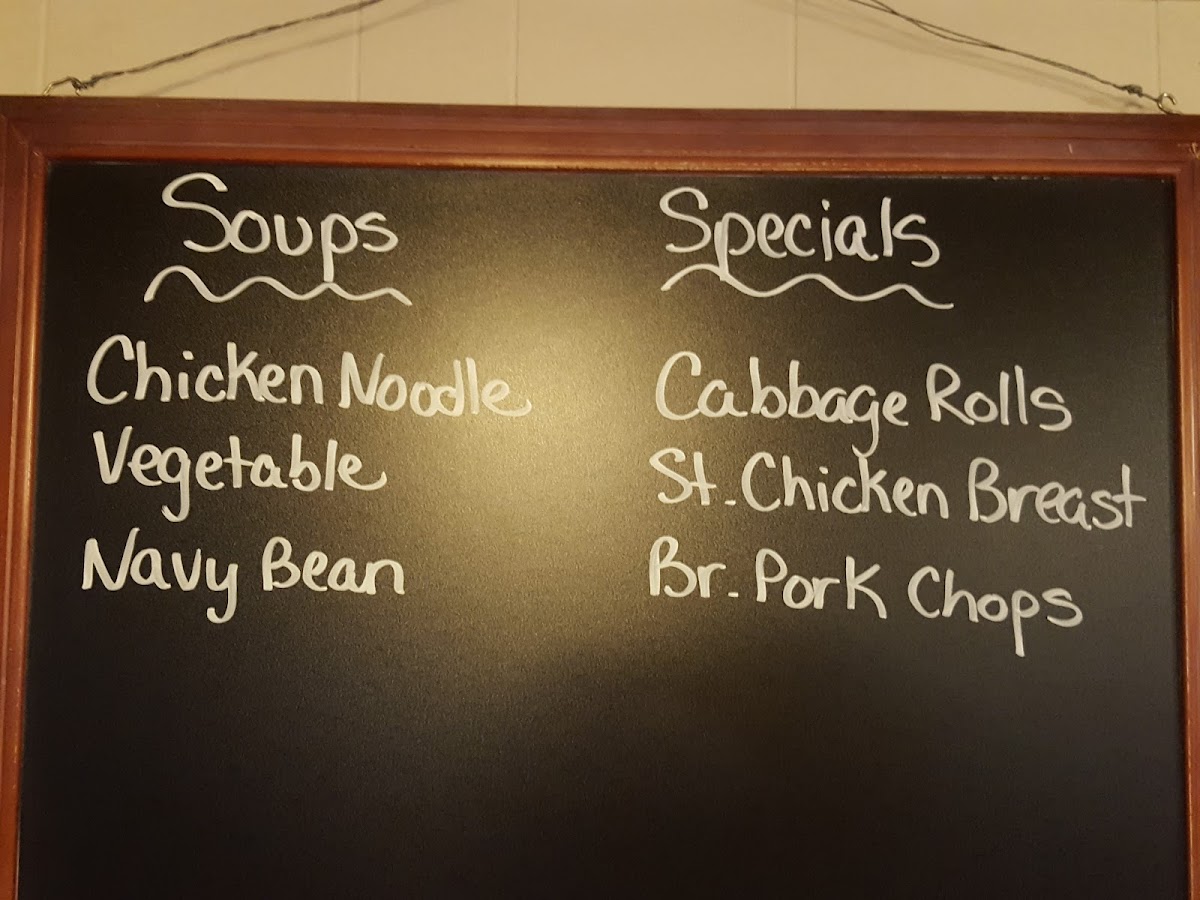 Soups
Chicken Noodle
Vegetable
Navy Bean
Specials
Cabbage Rolls
St. Chicken Breast
Br. Pork Chops